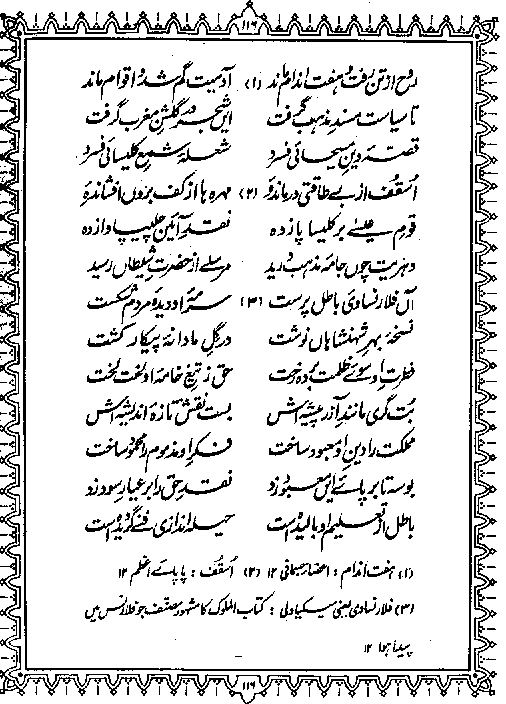 ۱۱۶
روح از تن رفت و هفت اندام ماند (۱) آدمیت گم شد و اقوام ماند
تا سیاست مسند مذہب گرفت این شجر در گلشن مغرب گرفت
قصۂ دین مسیحائی فسرد شعلۂ شمع کلیسائی فسرد
اسقف از بے طاقتی درماندۂ (۲) مہرہ ہا از کف بروں افشاندۂ
قوم عیسےٰ بر کلیسا پازدہ نقد آئین چلیپا وازدہ
دہریت چوں جامۂ مذہب درید مرسلے از حضرت شیطاں رسید
آں فلارنساوی باطل پرست (۳) سرمۂ او دیدۂ مردم شکست
نسخۂ بہر شہنشاہاں نوشت در گل ما دانۂ پیکار کشت
فطرت او سوئے ظلمت بردہ رخت حق ز تیغ خامۂ او لخت لخت
بت گری مانند آزر پیشہ اش بست نقش تازۂ اندیشہ اش
مملکت را دین او معبود ساخت فکر او مذموم را محمود ساخت
بوسہ تا بر پائے ایں معبود زد نقد حق را بر عیار سود زد
باطل از تعلیم او بالیدہ است حیلہ اندازی فنے گردیدہ است
(۱) ہفت اندام : اعضاء جسمانی ۱۲ (۲) اسقف : پاپائے اعظم ۱۲
(۳) فلارنساوی یعنی میکیاولی : کتاب الملوک کا مشہور مصنف جو فلارنس میں
پیدا ہوا ۱۲
۱۱۶